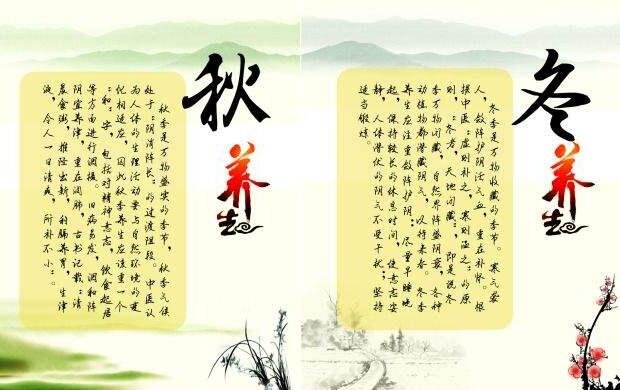 秋
养生
秋季是万物盛实的季节，秋季气候
处于“阴消阳长”的过渡阶段。中医认
为人体的生理活动要与自然环境的变
化相适应，因此秋季养生应该重一个
“和”字，包括对精神意志、饮食起居
等方面进行调摄。旧病易发，调和阳
阴宜养津，重在润肺，古书记载：“清
晨食粥，推陈出新，利膈养胃，生津
液，令人一日清爽，所补不小。”。
冬
养生
冬季是万物收藏的季节。寒气袭
人，敛阳护阴活气血，重在补肾。根
据中医“虚则补之，寒则温之”的原
则，“冬者，天地闭藏”，即是说冬
季万物闭藏，自然界阴盛阳衰，各种
动植物都潜藏阳气，以待来春。冬季
养生应注重敛阳护阴：尽量早睡晚
起，保持较长的休息时间，使意志安
静，人体潜伏的阳气不受干扰；坚持
适当锻炼。